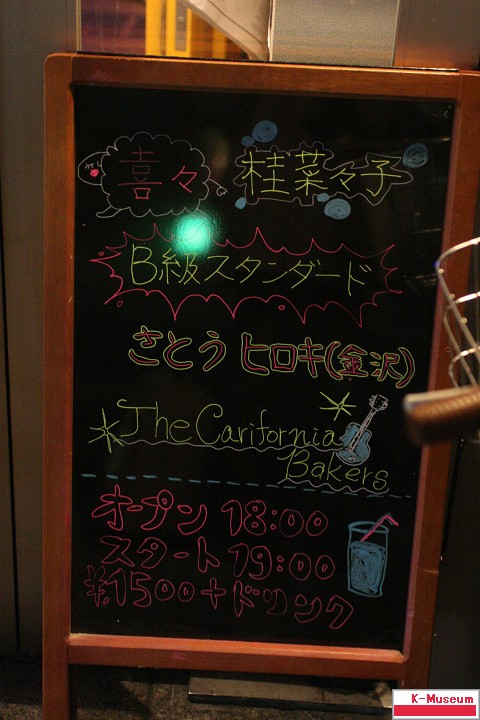 喜々 桂菜々子
B級スタンダード
さとう ヒロキ(金沢)
The Carifornia
Bakers
オープン 18:00
スタート 19:00
¥1500+ドリンク
K-Museum